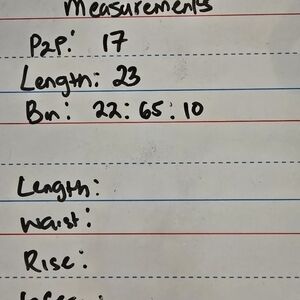 Measurements
P2P: 17
Length: 23
Bm: 22:65:10
Length:
Waist:
Rise: